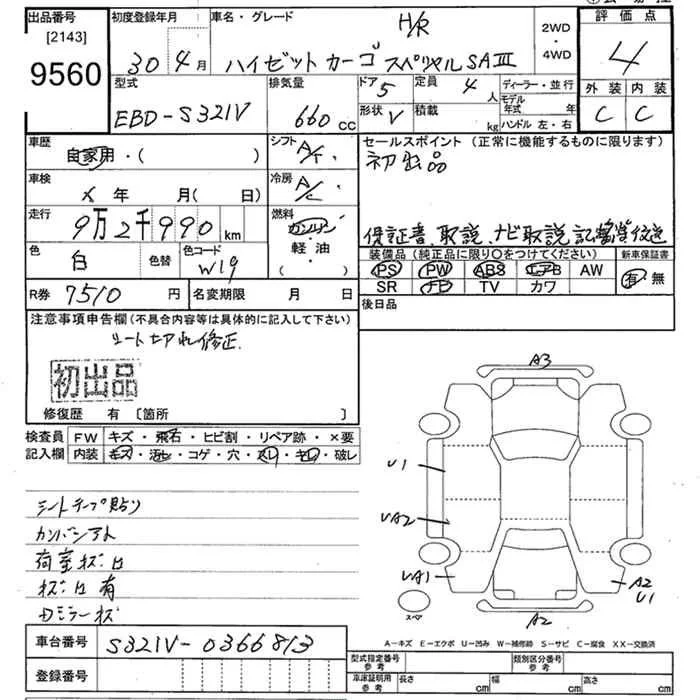 出品番号
[2143]
9560
初度登録年月
30 4月
車名・グレード
H/R
ハイゼットカーゴ スペシャルSAⅢ
2WD
・
4WD
評価点
4
外装 内装
C C
型式
EBD-S321V
排気量
660 cc
ドア 5
形状 V
定員 4 人
積載 kg
ディーラー・並行
モデル年式 年
ハンドル 左・右
車歴
自家用・( )
シフト
A/T
セールスポイント (正常に機能するものに限ります)
初出品
車検
X 年 月( 日)
冷房
A/C
走行
9万2千990 km
燃料
ガソリン
軽・油
・( )
保証書、取説、ナビ取説記録簿後送
色
白
色替
色コード
W19
装備品 (純正品に限り○をつけてください)
PS PW ABS エアB AW
SR ナビ TV カワ
新車保証書
有・無
R券 7510 円
名変期限 月 日
後日品
注意事項申告欄 (不具合内容等は具体的に記入して下さい)
シート切れ修正
初出品
修復歴 有 [箇所 ]
検査員
記入欄
FW キズ・飛石・ヒビ割・リペア跡・×要
内装 キズ・汚レ・コゲ・穴・スレ・キレ・破レ
シートテープ貼り
荷室キズ凹
キズ凹有
Dミラーキズ
A3
U1
UA2
UA1
A2
U1
A2
スペア
A-キズ E-エクボ U-凹み W-補修跡 S-サビ C-腐食 XX-交換済
車台番号 S321V-0366813
登録番号
型式指定番号
参考
類別区分番号
参考
車庫証明用
参考
長さ cm
幅 cm
高さ cm